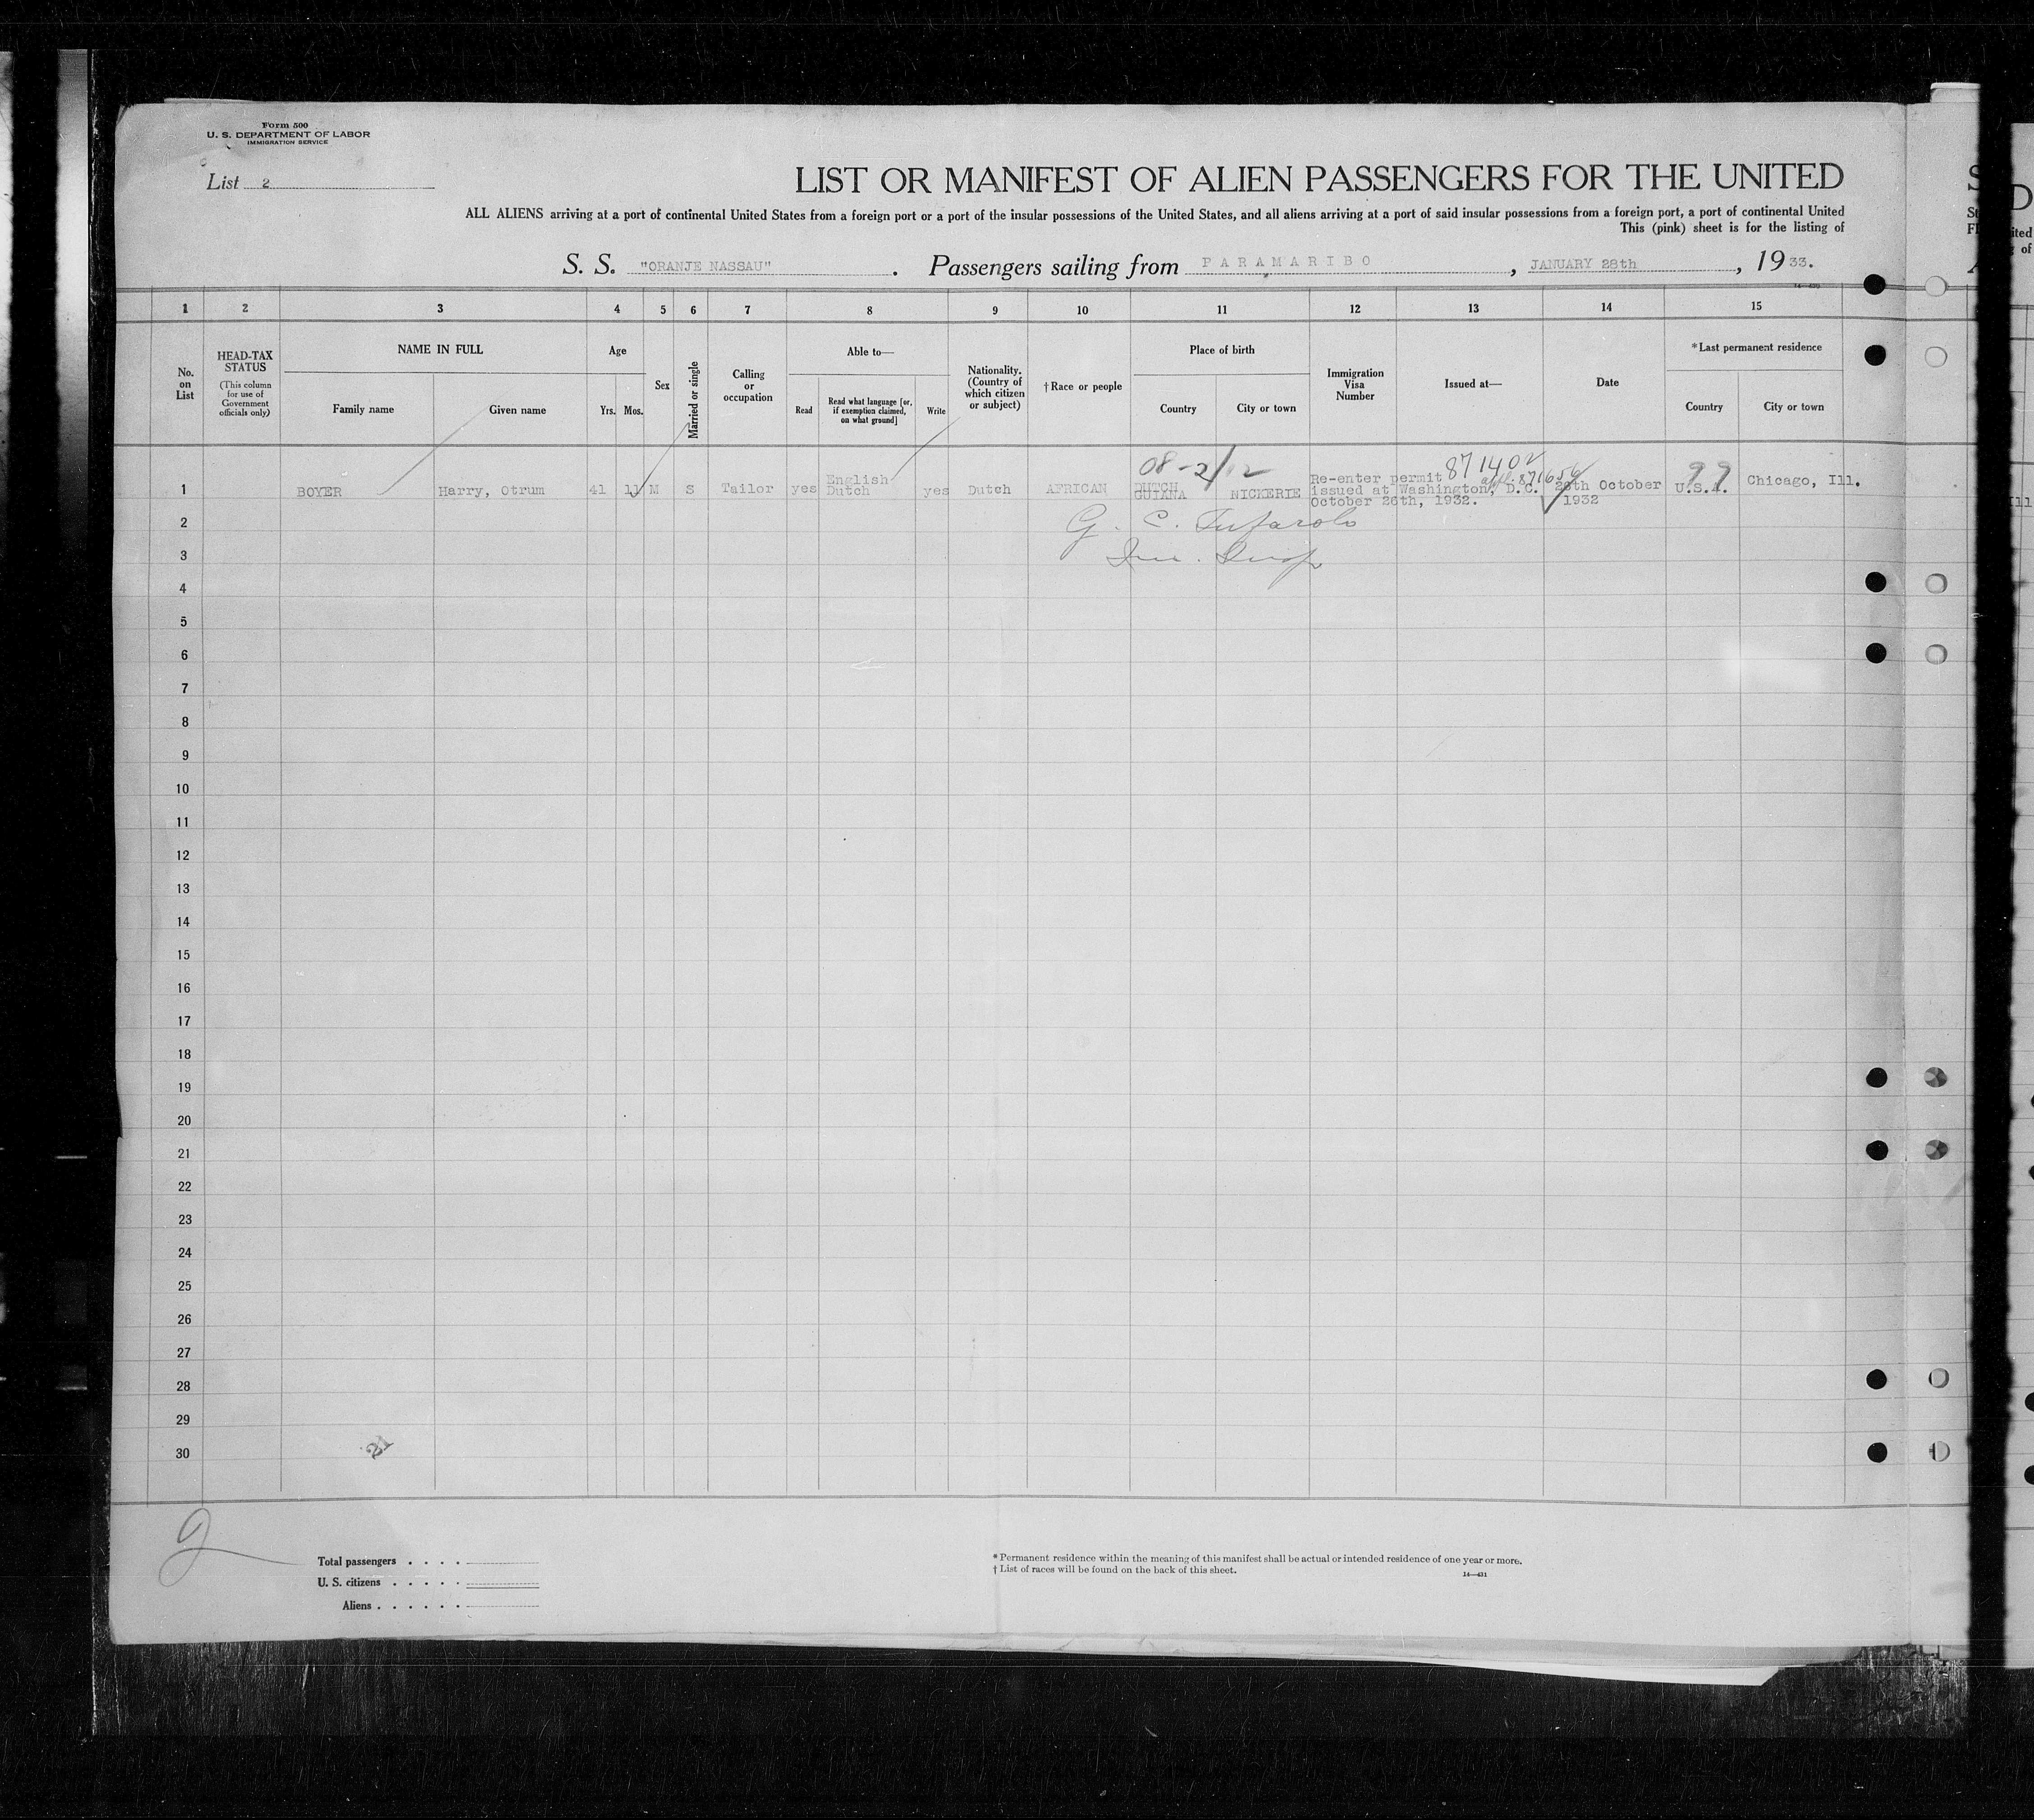 Form 500
U. S. DEPARTMENT OF LABOR
IMMIGRATION SERVICE
List 2
LIST OR MANIFEST OF ALIEN PASSENGERS FOR THE UNITED
ALL ALIENS arriving at a port of continental United States from a foreign port or a port of the insular possessions of the United States, and all aliens arriving at a port of said insular possessions from a foreign port, a port of continental United
This (pink) sheet is for the listing of
S. S. "ORANJE NASSAU" . Passengers sailing from PARAMARIBO , JANUARY 28th , 19 33.
1 2 3 4 5 6 7 8 9 10 11 12 13 14 15
No. on List
HEAD-TAX STATUS
(This column for use of Government officials only)
NAME IN FULL
Family name Given name
Age
Yrs. Mos.
Sex
Married or single
Calling or occupation
Able to—
Read
Read what language [or, if exemption claimed, on what ground]
Write
Nationality. (Country of which citizen or subject)
† Race or people
Place of birth
Country City or town
Immigration Visa Number
Issued at—
Date
*Last permanent residence
Country City or town
08-2/12 871402 99
1 BOYER Harry, Otrum 41 11 M S Tailor yes English Dutch yes Dutch AFRICAN DUTCH GUIANA NICKERIE Re-enter permit issued at Washington, D.C. October 26th, 1932. 26th October 1932 U.S.A. Chicago, Ill.
2 G. C. Tufarolo
3
4
5
6
7
8
9
10
11
12
13
14
15
16
17
18
19
20
21
22
23
24
25
26
27
28
29
30
21
2
Total passengers . . . .
U. S. citizens . . . . .
Aliens . . . . . .
* Permanent residence within the meaning of this manifest shall be actual or intended residence of one year or more.
† List of races will be found on the back of this sheet.
14—431